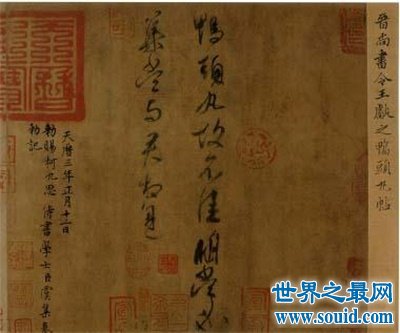 晉尚書令王獻之鴨頭丸帖
鴨頭丸故不佳明當必
集當與君相見
天曆三年正月十二日
敕賜柯九思 侍書學士臣虞集奉
敕記
世界之最网
www.souid.com